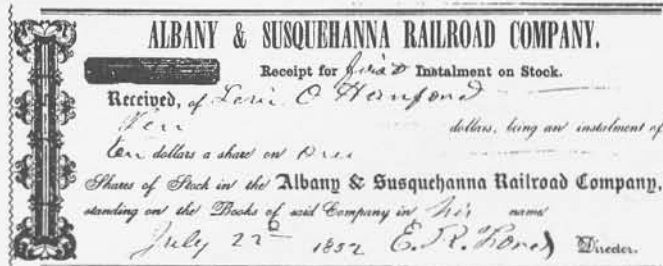 ALBANY & SUSQUEHANNA RAILROAD COMPANY.
Receipt for first Instalment on Stock.
Received, of Levi C Hanford
Ten dollars, being an instalment of
ten dollars a share on One
Shares of Stock in the Albany & Susquehanna Railroad Company,
standing on the Books of said Company in his name
July 22d 1852 E. R. Ford Director.